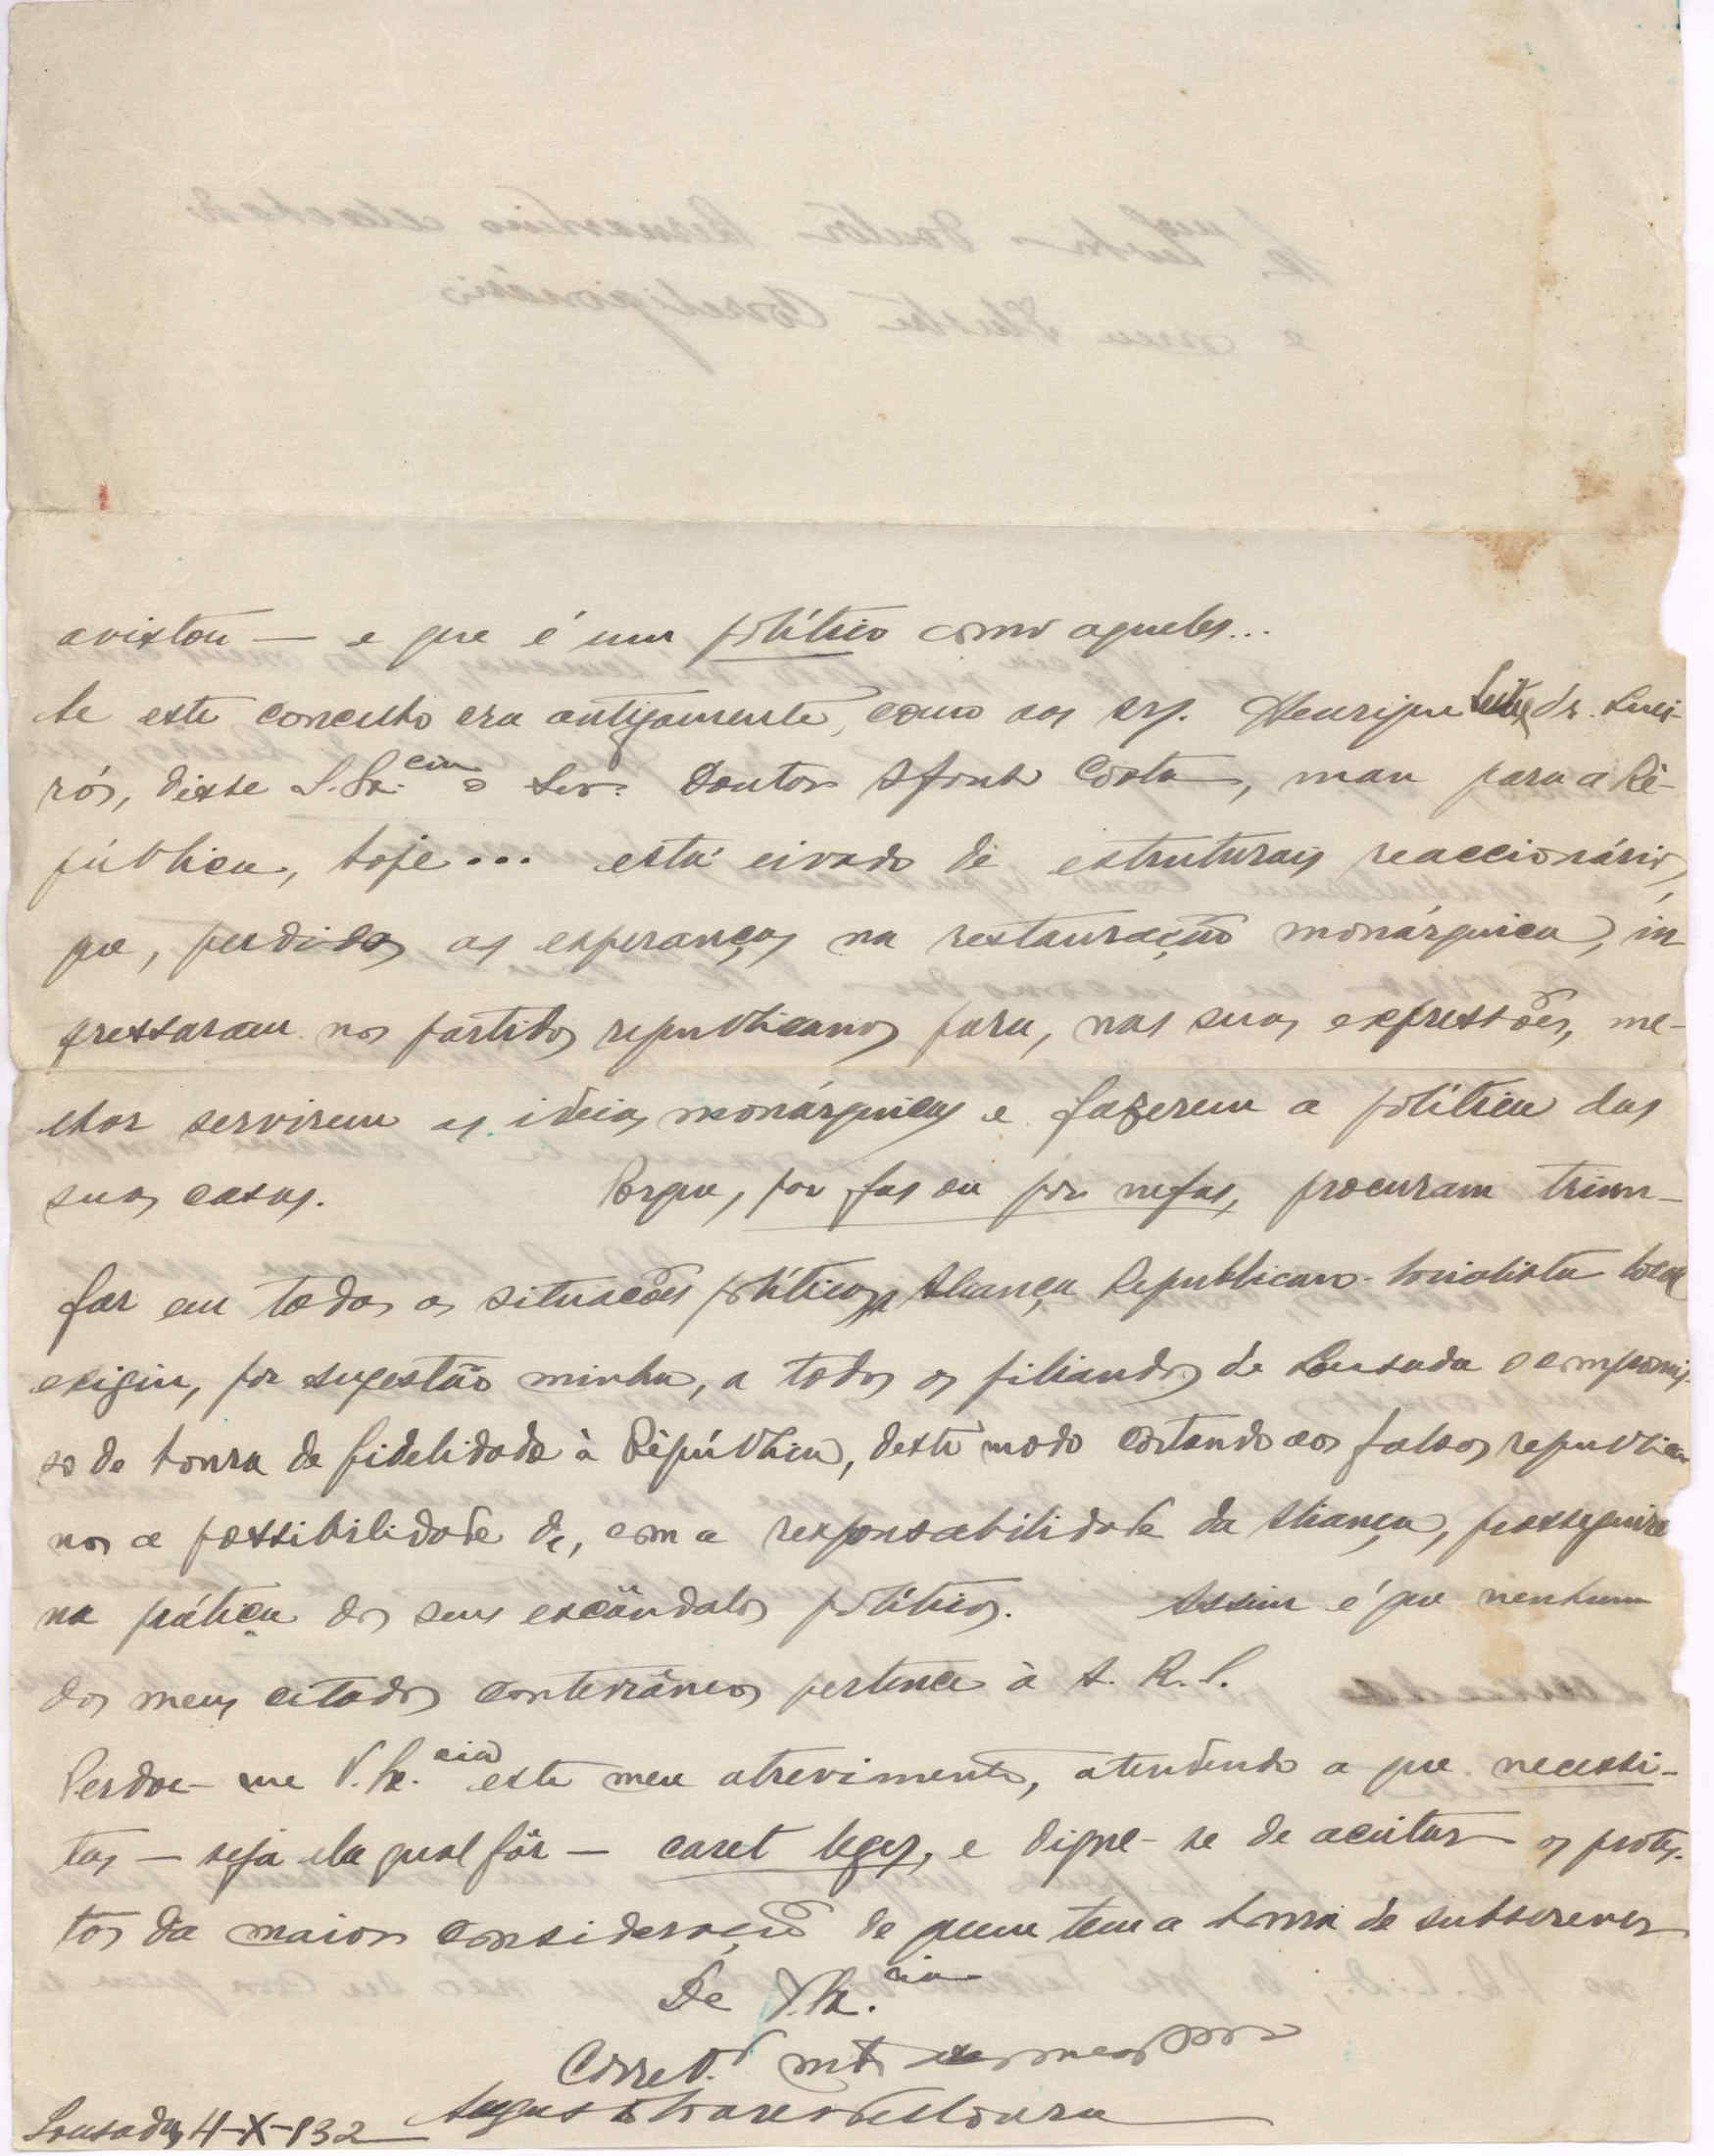 avistou — e que é um político como aqueles...
Se este concelho era antigamente, como aos srs. Henrique Leite, dr. Quei-
rós, disse S. Ex.cia o Snr. Doutor Afonso Costa, mau para a Ré-
pública, hoje... está eivado de estruturais reaccionários,
que, perdidas as esperanças na restauração monárquica, in-
gressaram nos partidos republicanos para, nas suas expressões, me-
lhor servirem as ideias monárquicas e fazerem a política das
suas casas. Porque, por fas ou por nefas, procuram triun-
far em todas as situações políticas, Aliança Republicano-Socialista local
exigiu, por sugestão minha, a todos os filiandos de Lousada o compromis-
so de honra de fidelidade à Répública, deste modo cortando aos falsos republica-
nos a possibilidade de, com a responsabilidade da Aliança, prosseguirem
na prática dos seus escândalos políticos. Assim é que nenhum
dos meus citados conterrâneos pertence à A. R. S.
Perdoe-me V. Ex.cia este meu atrevimento, atendendo a que necessi-
tas — seja ela qual fôr — caret leges, e digne-se de aceitar os protes-
tos da maior consideração de quem tem a honra de subscrever
De V. Ex.cia
Corre. mt.
Augusto Soares de Moura
Lousada, 4-X-932